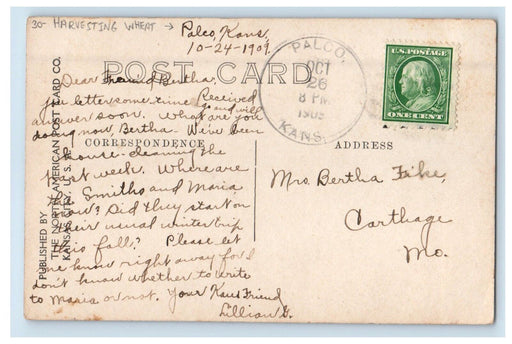 30- HARVESTING WHEAT →
Palco, Kans,
10-24-1909.
POST CARD.
Dear Friend Bertha,
letter some time
Received
answer soon. What are you
doing now, Bertha- We've been
CORRESPONDENCE
house-cleaning the
past week. Where are
the Smiths and Maria
now? Did they start on
their usual winter trip
this fall? Please let
me know right away for I
don't know whether to write
to Maria or not. Your Kans Friend
Lillian G.
PUBLISHED BY
THE NORTH AMERICAN POST CARD CO.
KANSAS CITY, U.S.A.
PALCO,
OCT
26
8 PM
1909
KANS.
U.S. POSTAGE
ONE CENT
ADDRESS
Mrs. Bertha Fike,
Carthage
Mo.